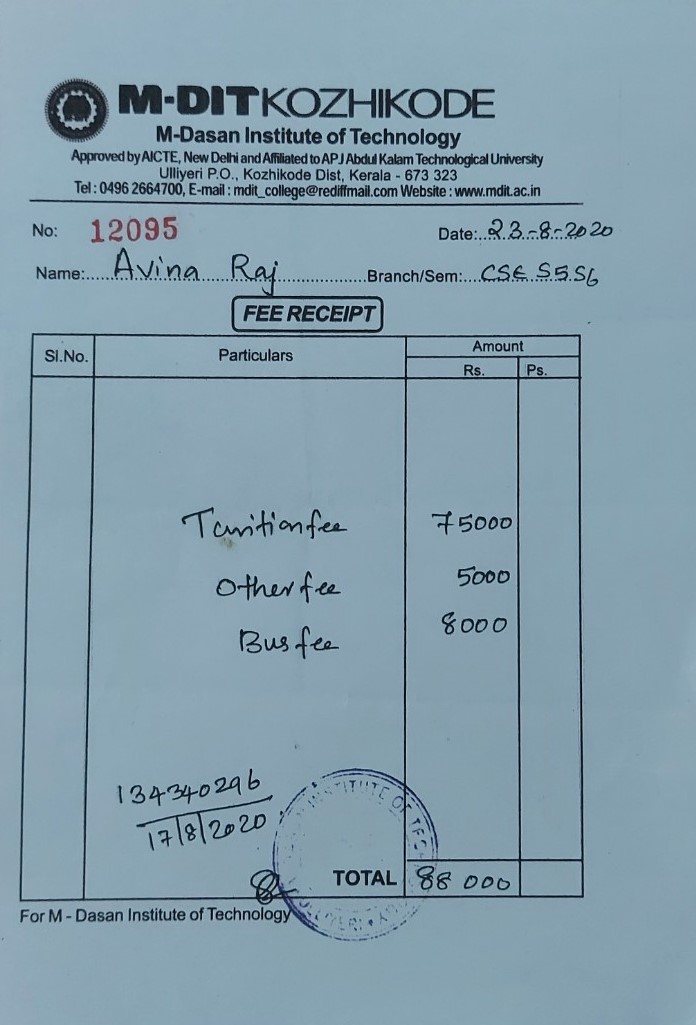 M-DIT KOZHIKODE
M-Dasan Institute of Technology
Approved by AICTE, New Delhi and Affiliated to APJ Abdul Kalam Technological University
Ulliyeri P.O., Kozhikode Dist, Kerala - 673 323
Tel : 0496 2664700, E-mail : mdit_college@rediffmail.com Website : www.mdit.ac.in
No: 12095 Date:..23-8-2020
Name:.....Avina Raj..................Branch/Sem:....CSE S5S6
FEE RECEIPT
Sl.No. Particulars Amount
Rs. Ps.
Tauition fee 75000
Other fee 5000
Bus fee 8000
134340296
17/8/2020
INSTITUTE OF TEC
TOTAL 88 000
For M - Dasan Institute of Technology